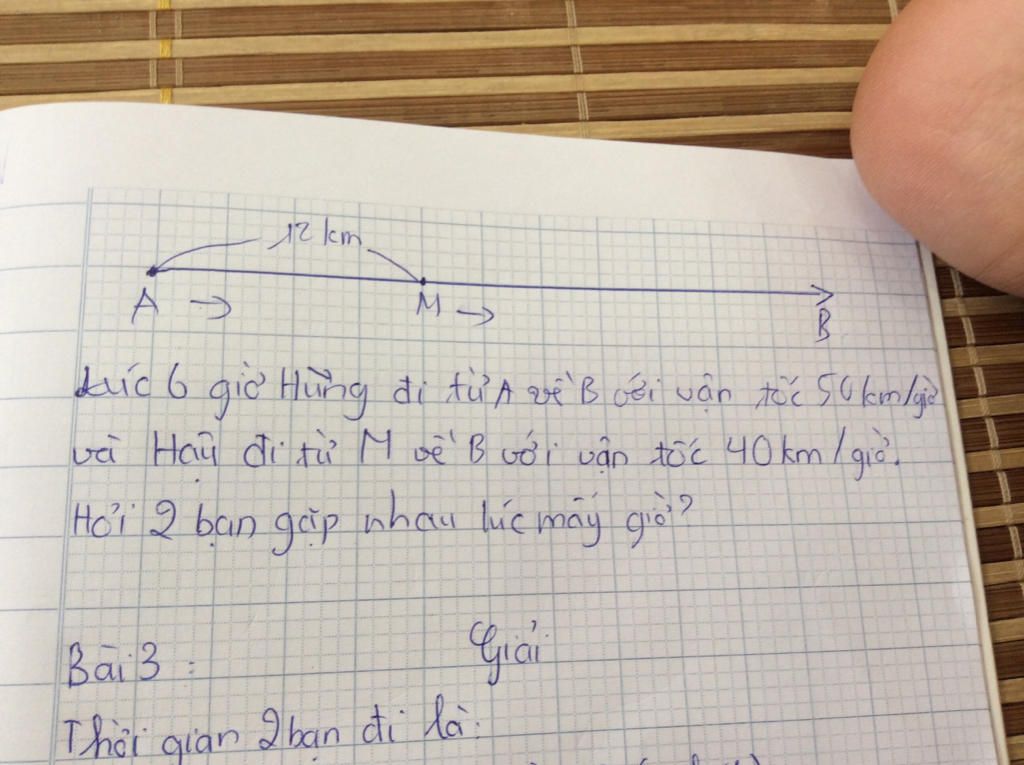 12 km
A → M → B
Lúc 6 giờ Hùng đi từ A về B với vận tốc 50 km/giờ
và Hậu đi từ M về B với vận tốc 40 km/giờ.
Hỏi 2 bạn gặp nhau lúc mấy giờ?
Giải
Bài 3:
Thời gian 2 bạn đi là: